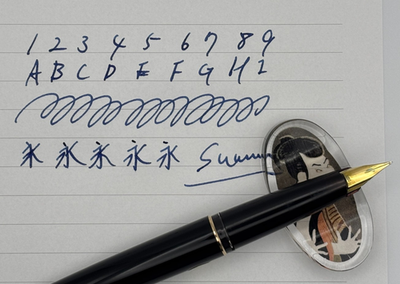 1 2 3 4 5 6 7 8 9
A B C D E F G H I
永 永 永 永 永